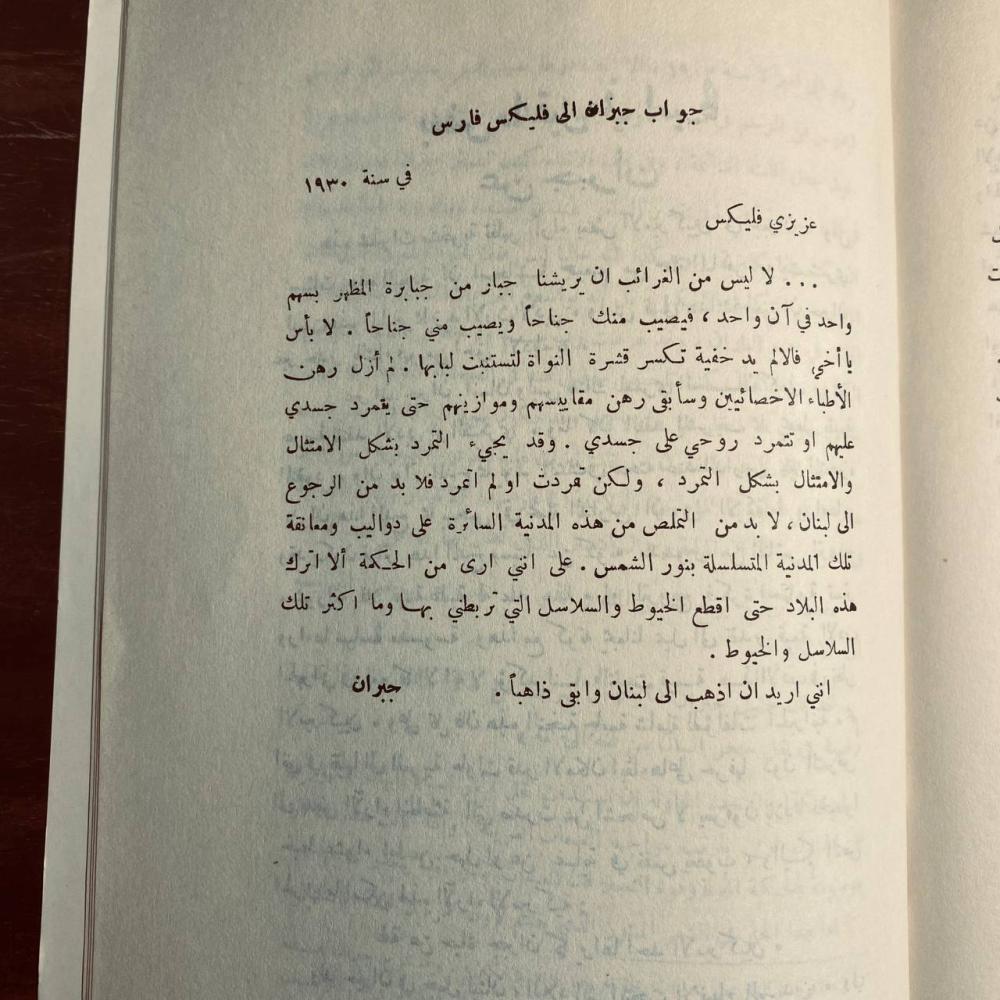 جواب جبران الى فليكس فارس
في سنة ١٩٣٠
عزيزي فليكس
... لا ليس من الغرائب ان يريشنا جبار من جبابرة المظهر بسهم
واحد في آن واحد ، فيصيب منك جناحاً ويصيب مني جناحاً . لا بأس
يا أخي فالالم يد خفية تكسر قشرة النواة لتستنبت لبابها . لم أزل رهن
الأطباء الاخصائيين وسأبقى رهن مقاييسهم وموازينهم حتى يتمرد جسدي
عليهم او تتمرد روحي على جسدي . وقد يجيء التمرد بشكل الامتثال
والامتثال بشكل التمرد ، ولكن تمردت او لم اتمرد فلا بد من الرجوع
الى لبنان ، لا بد من التملص من هذه المدنية السائرة على دواليب ومعانقة
تلك المدنية المتسلسلة بنور الشمس . على انني ارى من الحكمة ألا اترك
هذه البلاد حتى اقطع الخيوط والسلاسل التي تربطني بها وما اكثر تلك
السلاسل والخيوط .
انني اريد ان اذهب الى لبنان وابقى ذاهباً . جبران